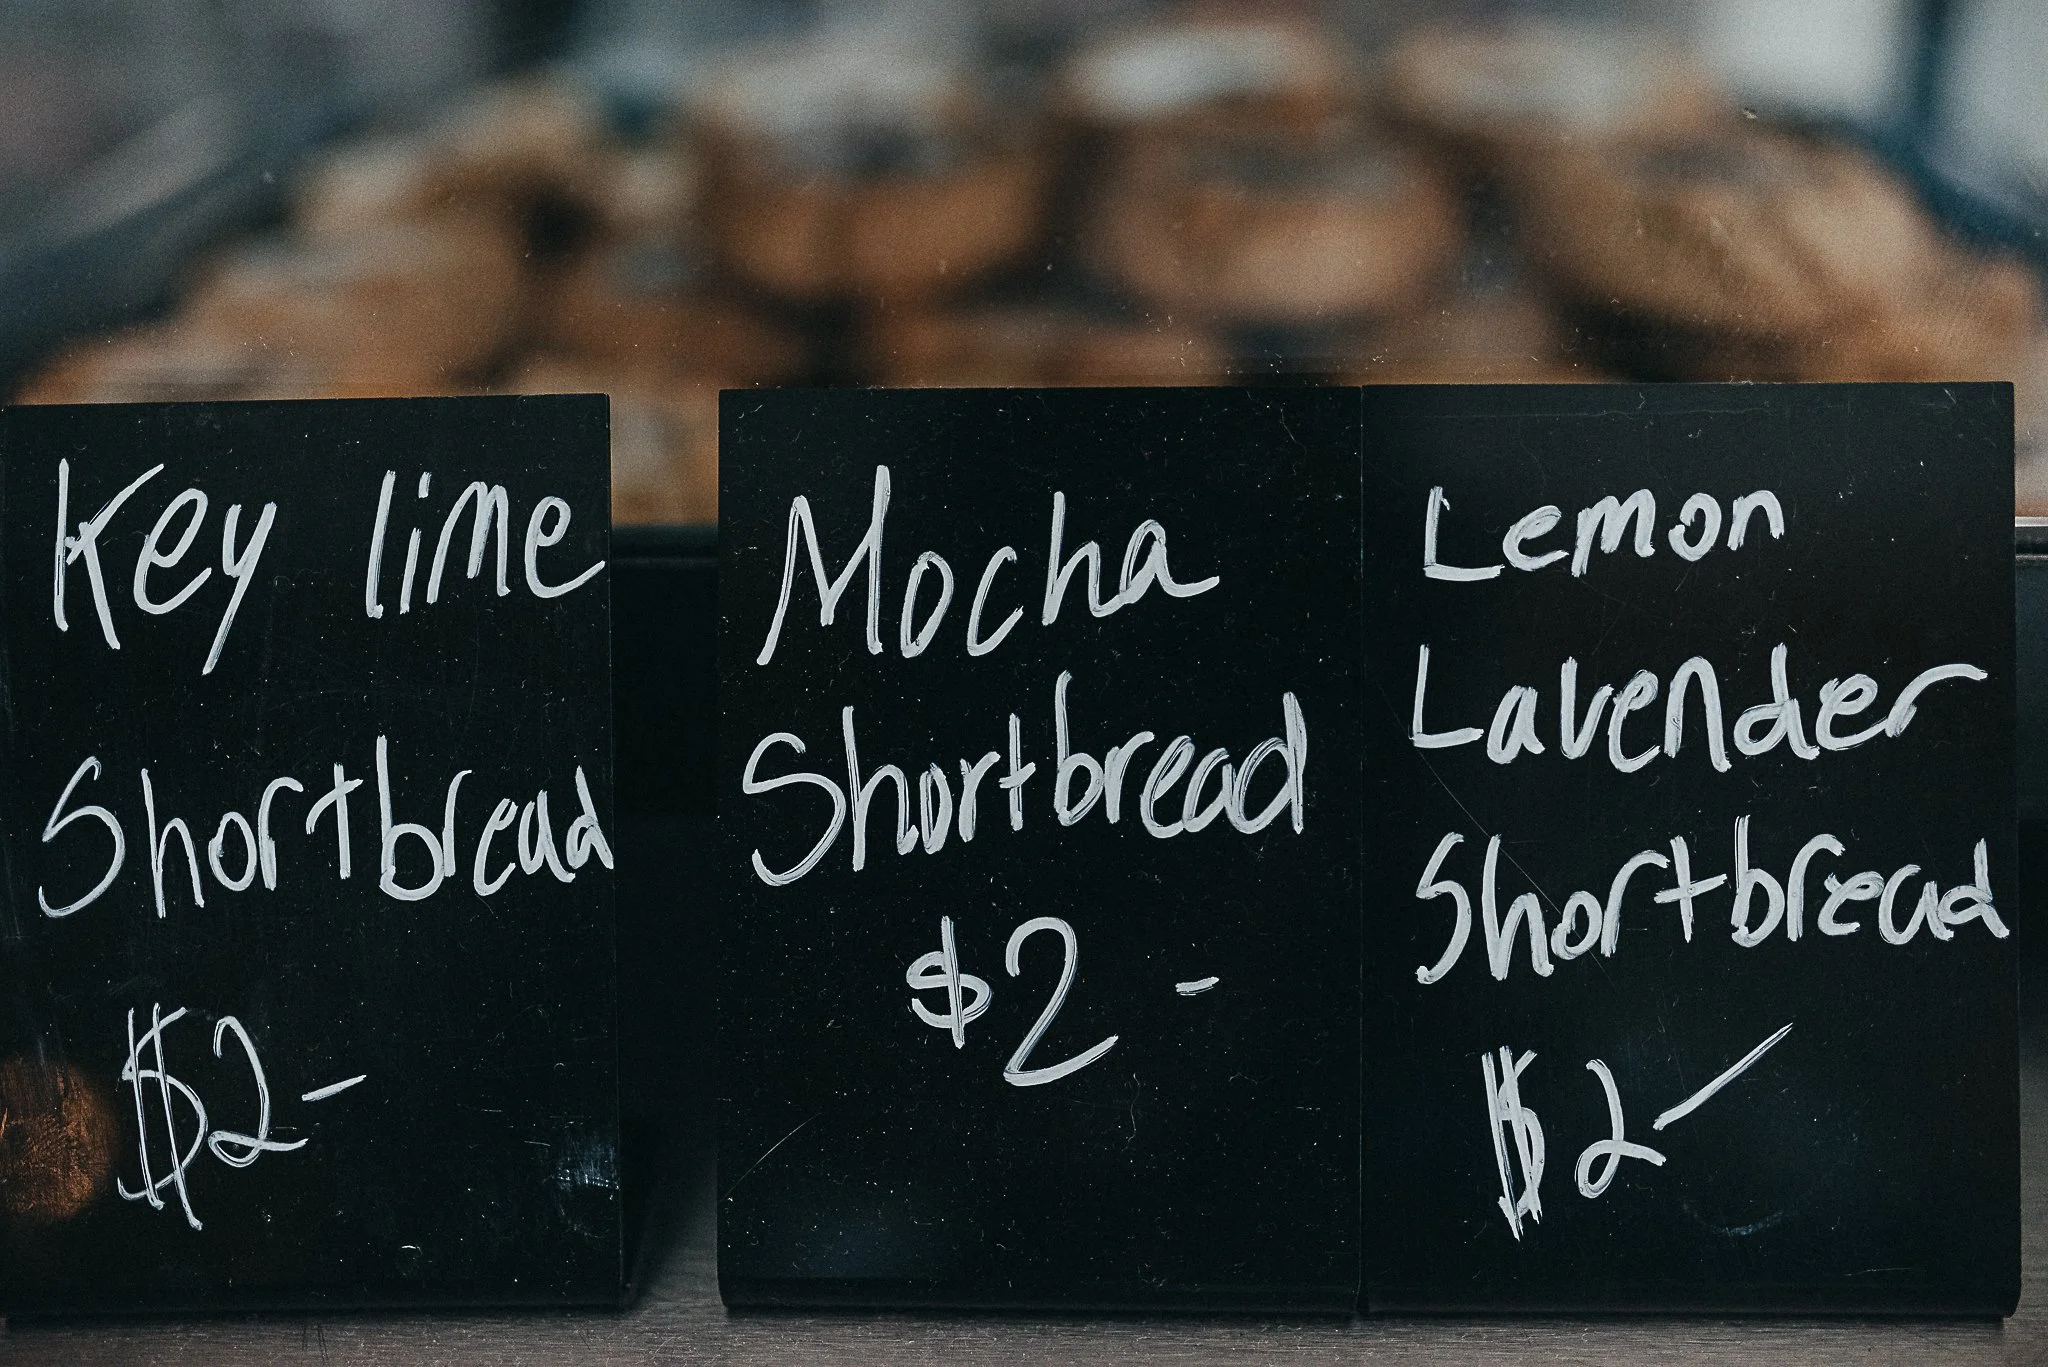 Key lime
Shortbread
$2-
Mocha
Shortbread
$2 -
Lemon
Lavender
Shortbread
$2-